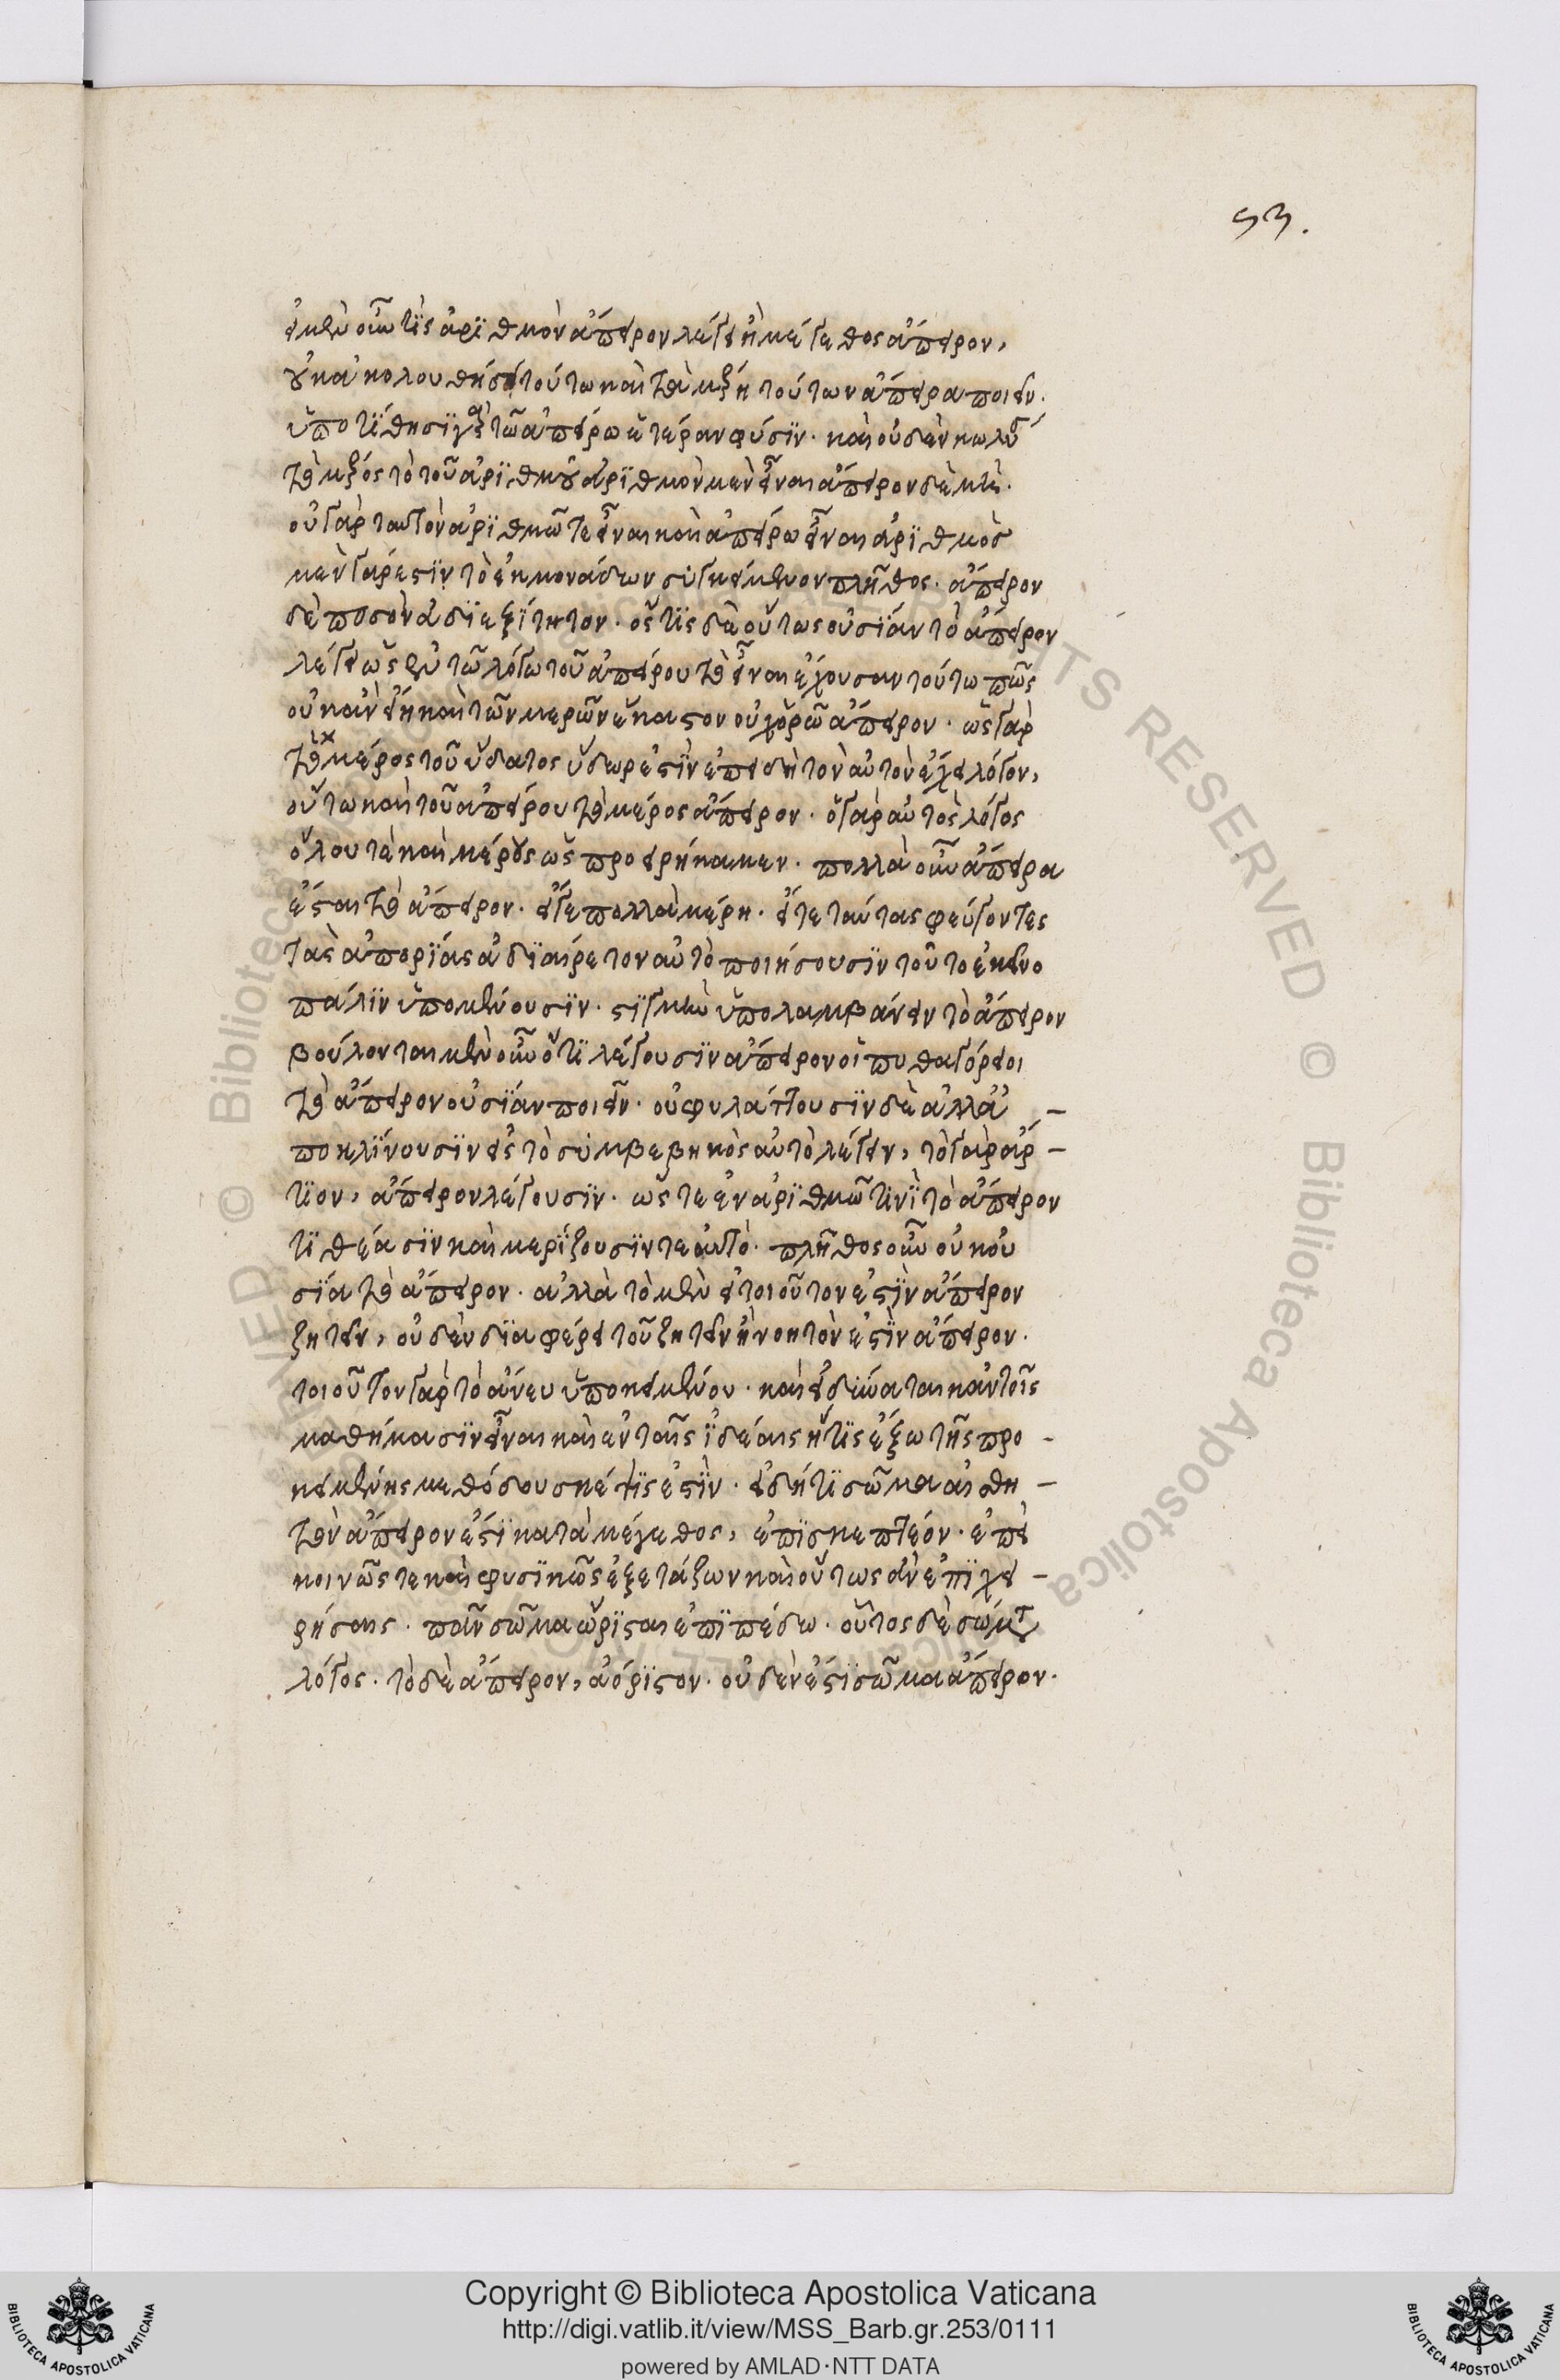 53.
εἰ μὲν οὖν τὶς ἀριθμὸν ἄπειρον λέγει ἢ μέγεθος ἄπειρον,
οὐκ ἀκολουθήσει τούτω καὶ τὰ μέρη τούτων ἄπειρα ποιεῖν.
ὑποτίθησι γὰρ τῶ ἀπείρω ἑτέραν φύσιν. καὶ οὐδὲν κωλύει
τὸ μέρος τὸ τοῦ ἀριθμοῦ ἀριθμὸν μὲν εἶναι ἄπειρον δὲ μὴ.
οὐ γὰρ ταυτὸν ἀριθμῶ τε εἶναι καὶ ἀπείρω εἶναι ἀριθμὸς
μὲν γάρ ἐστιν τὸ ἐκ μονάδων συγκείμενον πλῆθος. ἄπειρον
δὲ ποσὸν ἀδιεξίτητον. ὅστις δὲ οὕτως οὐσίαν τὸ ἄπειρον
λέγει ὡς ἐν τῶ λόγω τοῦ ἀπείρου τὸ εἶναι ἔχουσαν τούτω πῶς
οὐκ ἂν εἴη καὶ τῶν μερῶν ἕκαστον οὐχ ὁρῶ ἄπειρον. ὡς γὰρ
τὸ μέρος τοῦ ὕδατος ὕδωρ ἐστὶν ἐπειδὴ τὸν αὐτὸν ἔχει λόγον,
οὕτω καὶ τοῦ ἀπείρου τὸ μέρος ἄπειρον. ὁ γὰρ αὐτὸς λόγος
ὅλου τὲ καὶ μέρους ὡς προειρήκαμεν. πολλὰ οὖν ἄπειρα
ἔσται τὸ ἄπειρον. εἴγε πολλὰ μέρη. εἴτε ταύτας φεύγοντες
τὰς ἀπορίας ἀδιαίρετον αὐτὸ ποιήσουσιν τοῦτο ἐκεῖνο
πάλιν ὑπομένουσιν. στιγμὴν ὑπολαμβάνειν τὸ ἄπειρον
βούλονται μὲν οὖν ὅτι λέγουσιν ἄπειρον οἱ πυθαγόρειοι
τὸ ἄπειρον οὐσίαν ποιεῖν. οὐ φυλάττουσιν δὲ ἀλλ' ἀ-
ποκλίνουσιν εἰς τὸ συμβεβηκὸς αὐτὸ λέγειν, τὸ γὰρ ἄρ-
τιον, ἄπειρον λέγουσιν. ὥστε ἐν ἀριθμῶ τινὶ τὸ ἄπειρον
τιθέασιν καὶ μερίζουσίν τε αὐτὸ. πλῆθος οὖν οὐκ οὐ
σία τὸ ἄπειρον. ἀλλὰ τὸ μὲν εἰ τοιοῦτον ἐστὶν ἄπειρον
ζητεῖν, οὐδὲν διαφέρει τοῦ ζητεῖν ἢ νοητὸν ἐστὶν ἄπειρον.
τοιοῦτον γὰρ τὸ ἄνευ ὑποκειμένου. καὶ εἰ δύναται κἀν τοῖς
μαθήμασιν εἶναι καὶ ἐν ταῖς ἰδέαις ἥτις ἔξω τῆς προ-
κειμένης μεθόδου σκέψις ἐστὶν. εἰ δή τι σῶμα αἰσθη-
τὸν ἄπειρον ἐστὶ κατὰ μέγεθος, ἐπισκεπτέον. ἐπεὶ
κοινῶς τε καὶ φυσικῶς ἐξετάζων καὶ οὕτως ἂν ἐπιχει-
ρήσαις. πᾶν σῶμα ὥρισται ἐπιπέδω. οὗτος δὲ σώματος
λόγος. τὸ δὲ ἄπειρον, ἀόριστον. οὐδὲν ἐστὶ σῶμα ἄπειρον.
© Biblioteca Apostolica Vaticana ALL RIGHTS RESERVED
Copyright © Biblioteca Apostolica Vaticana
http://digi.vatlib.it/view/MSS_Barb.gr.253/0111
powered by AMLAD·NTT DATA
BIBLIOTECA APOSTOLICA VATICANA
BIBLIOTECA APOSTOLICA VATICANA